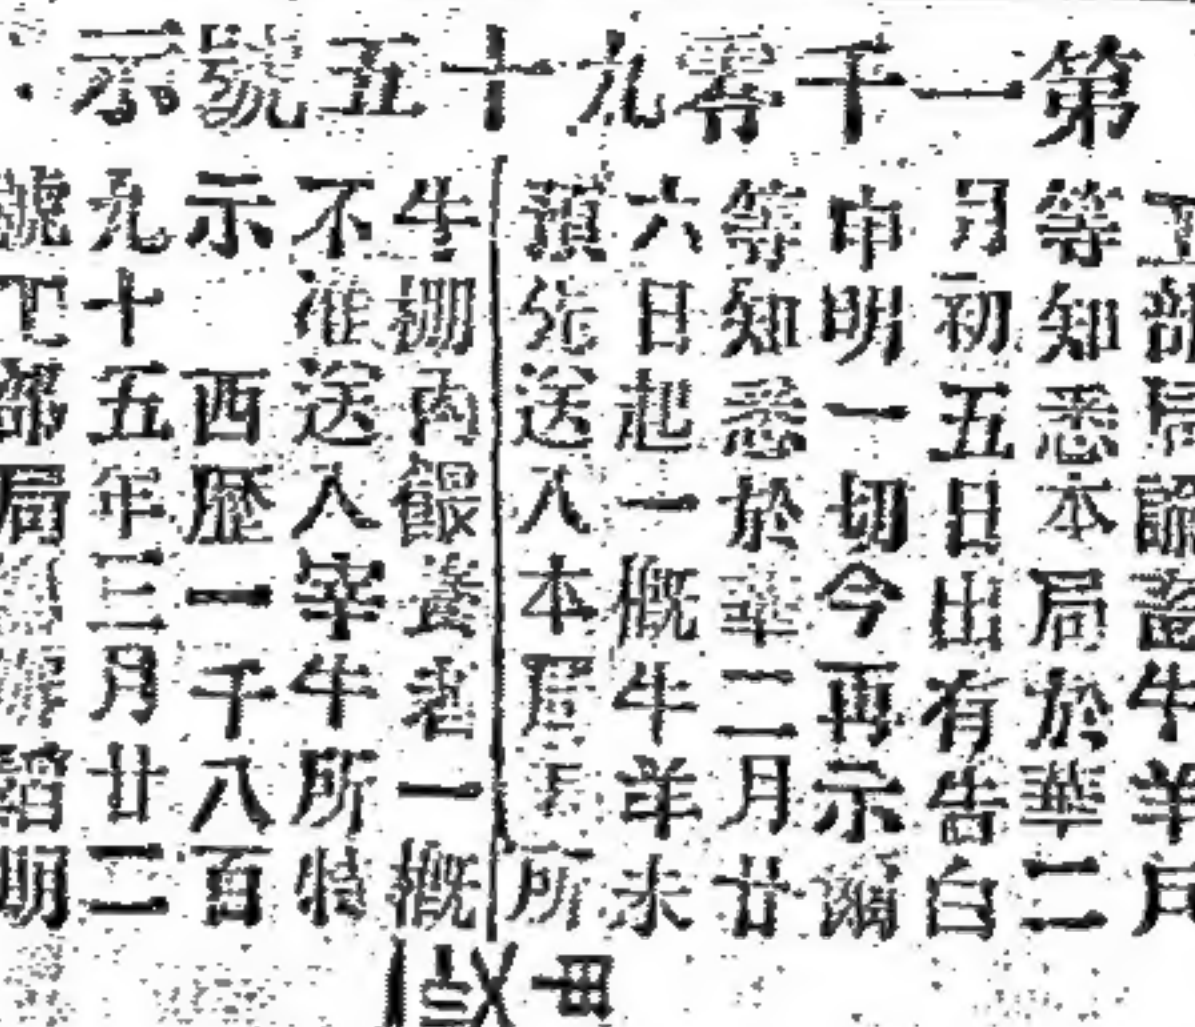 第一千零九十五號示
工部局諭畜牛羊戶
等知悉本局於華二
月初五日出有告白
申明一切今再示爾
等知悉於華二月廿
六日起一概牛羊未
預先送入本局所
牛棚內餵養者一概
不准送入宰牛所特
示 西歷一千八百
九十五年三月廿二
號工部局 明